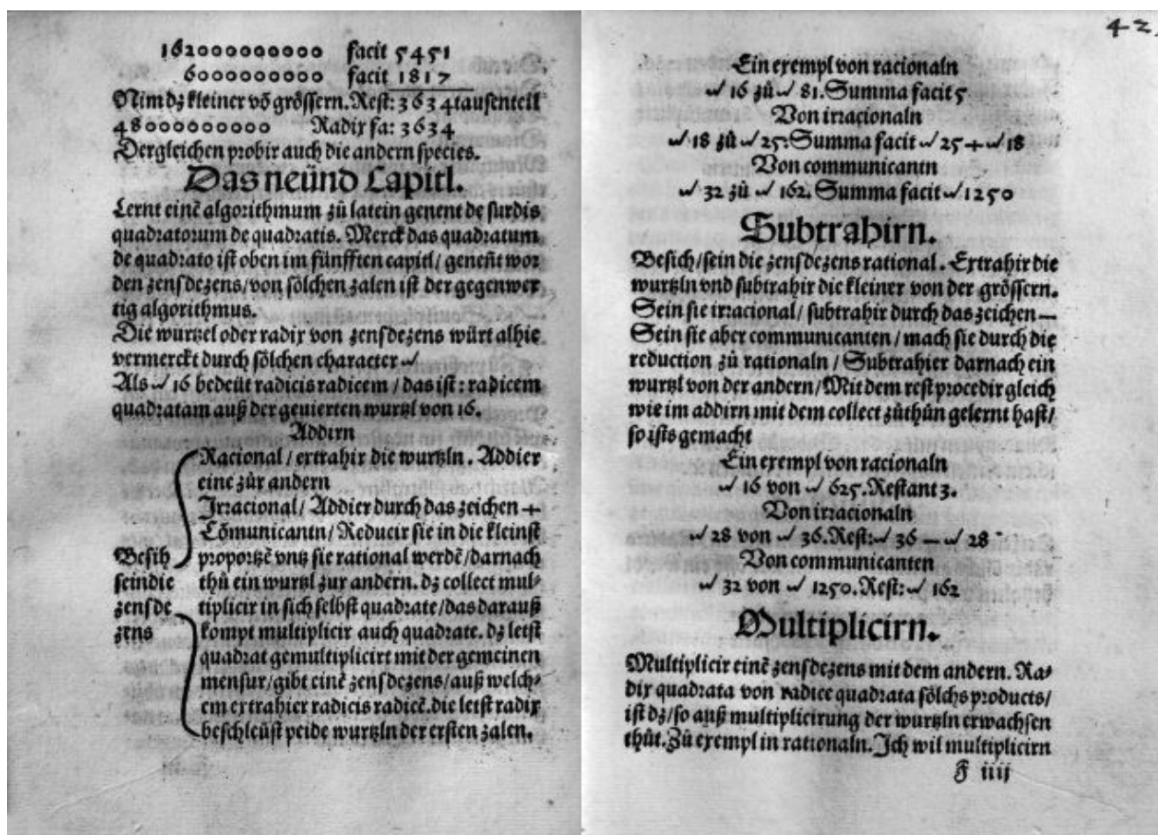 1620000000000 facit 5451
600000000000 facit 1817
Nim dz kleiner võ grössern. Rest: 3634 tausenteil
480000000000 Radix fa: 3634
Dergleichen probir auch die andern species.
Das neünd Capitl.
Lernt einẽ algorithmum zů latein genent de surdis
quadratorum de quadratis. Merck das quadratum
de quadrato ist oben im fünfften capitl/ geneñt wor
den zensdezens/von sölchen zalen ist der gegenwer
tig algorithmus.
Die wurtzel oder radix von zensdezens würt alhie
vermerckt durch sölchen character √
Als √ 16 bedeüt radicis radicem/das ist: radicem
quadratam auß der geuierten wurtzl von 16.
Addirn
Racional/extrahir die wurtzln. Addier
eine zůr andern
Irracional/Addier durch das zeichen +
Cõmunicantn/Reducir sie in die kleinst
Besih proportzẽ vntz sie rational werdẽ/darnach
sein die thů ein wurtzl zur andern. dz collect mul-
zensde tiplicir in sich selbst quadrate/das darauß
zens kompt multiplicir auch quadrate. dz letst
quadrat gemultiplicirt mit der gemeinen
mensur/gibt einẽ zensdezens/auß welch-
em extrahier radicis radicẽ.die letst radix
beschleüst peide wurtzln der ersten zalen.
42
Ein exempl von racionaln
√ 16 zů √ 81. Summa facit 5
Von irracionaln
√ 18 zů √ 25: Summa facit √ 25 + √ 18
Von communicantn
√ 32 zů √ 162. Summa facit √ 1250
Subtrahirn.
Besich/sein die zensdezens rational. Extrahir die
wurtzln vnd subtrahir die kleiner von der grössern.
Sein sie irracional/subtrahir durch das zeichen —
Sein sie aber communicanten/mach sie durch die
reduction zů rationaln/Subtrahier darnach ein
wurtzl von der andern/Mit dem rest procedir gleich
wie im addirn mit dem collect zůthůn gelernt hast/
so ists gemacht
Ein exempl von racionaln
√ 16 von √ 625. Restant 3.
Von irracionaln
√ 28 von √ 36. Rest: √ 36 — √ 28
Von communicanten
√ 32 von √ 1250. Rest: √ 162
Multiplicirn.
Multiplicir einẽ zensdezens mit dem andern. Ra-
dix quadrata von radice quadrata sölchs products/
ist dz/so auß multiplicirung der wurtzln erwachsen
thůt. Zů exempl in rationaln. Ich wil multiplicirn
F iiij